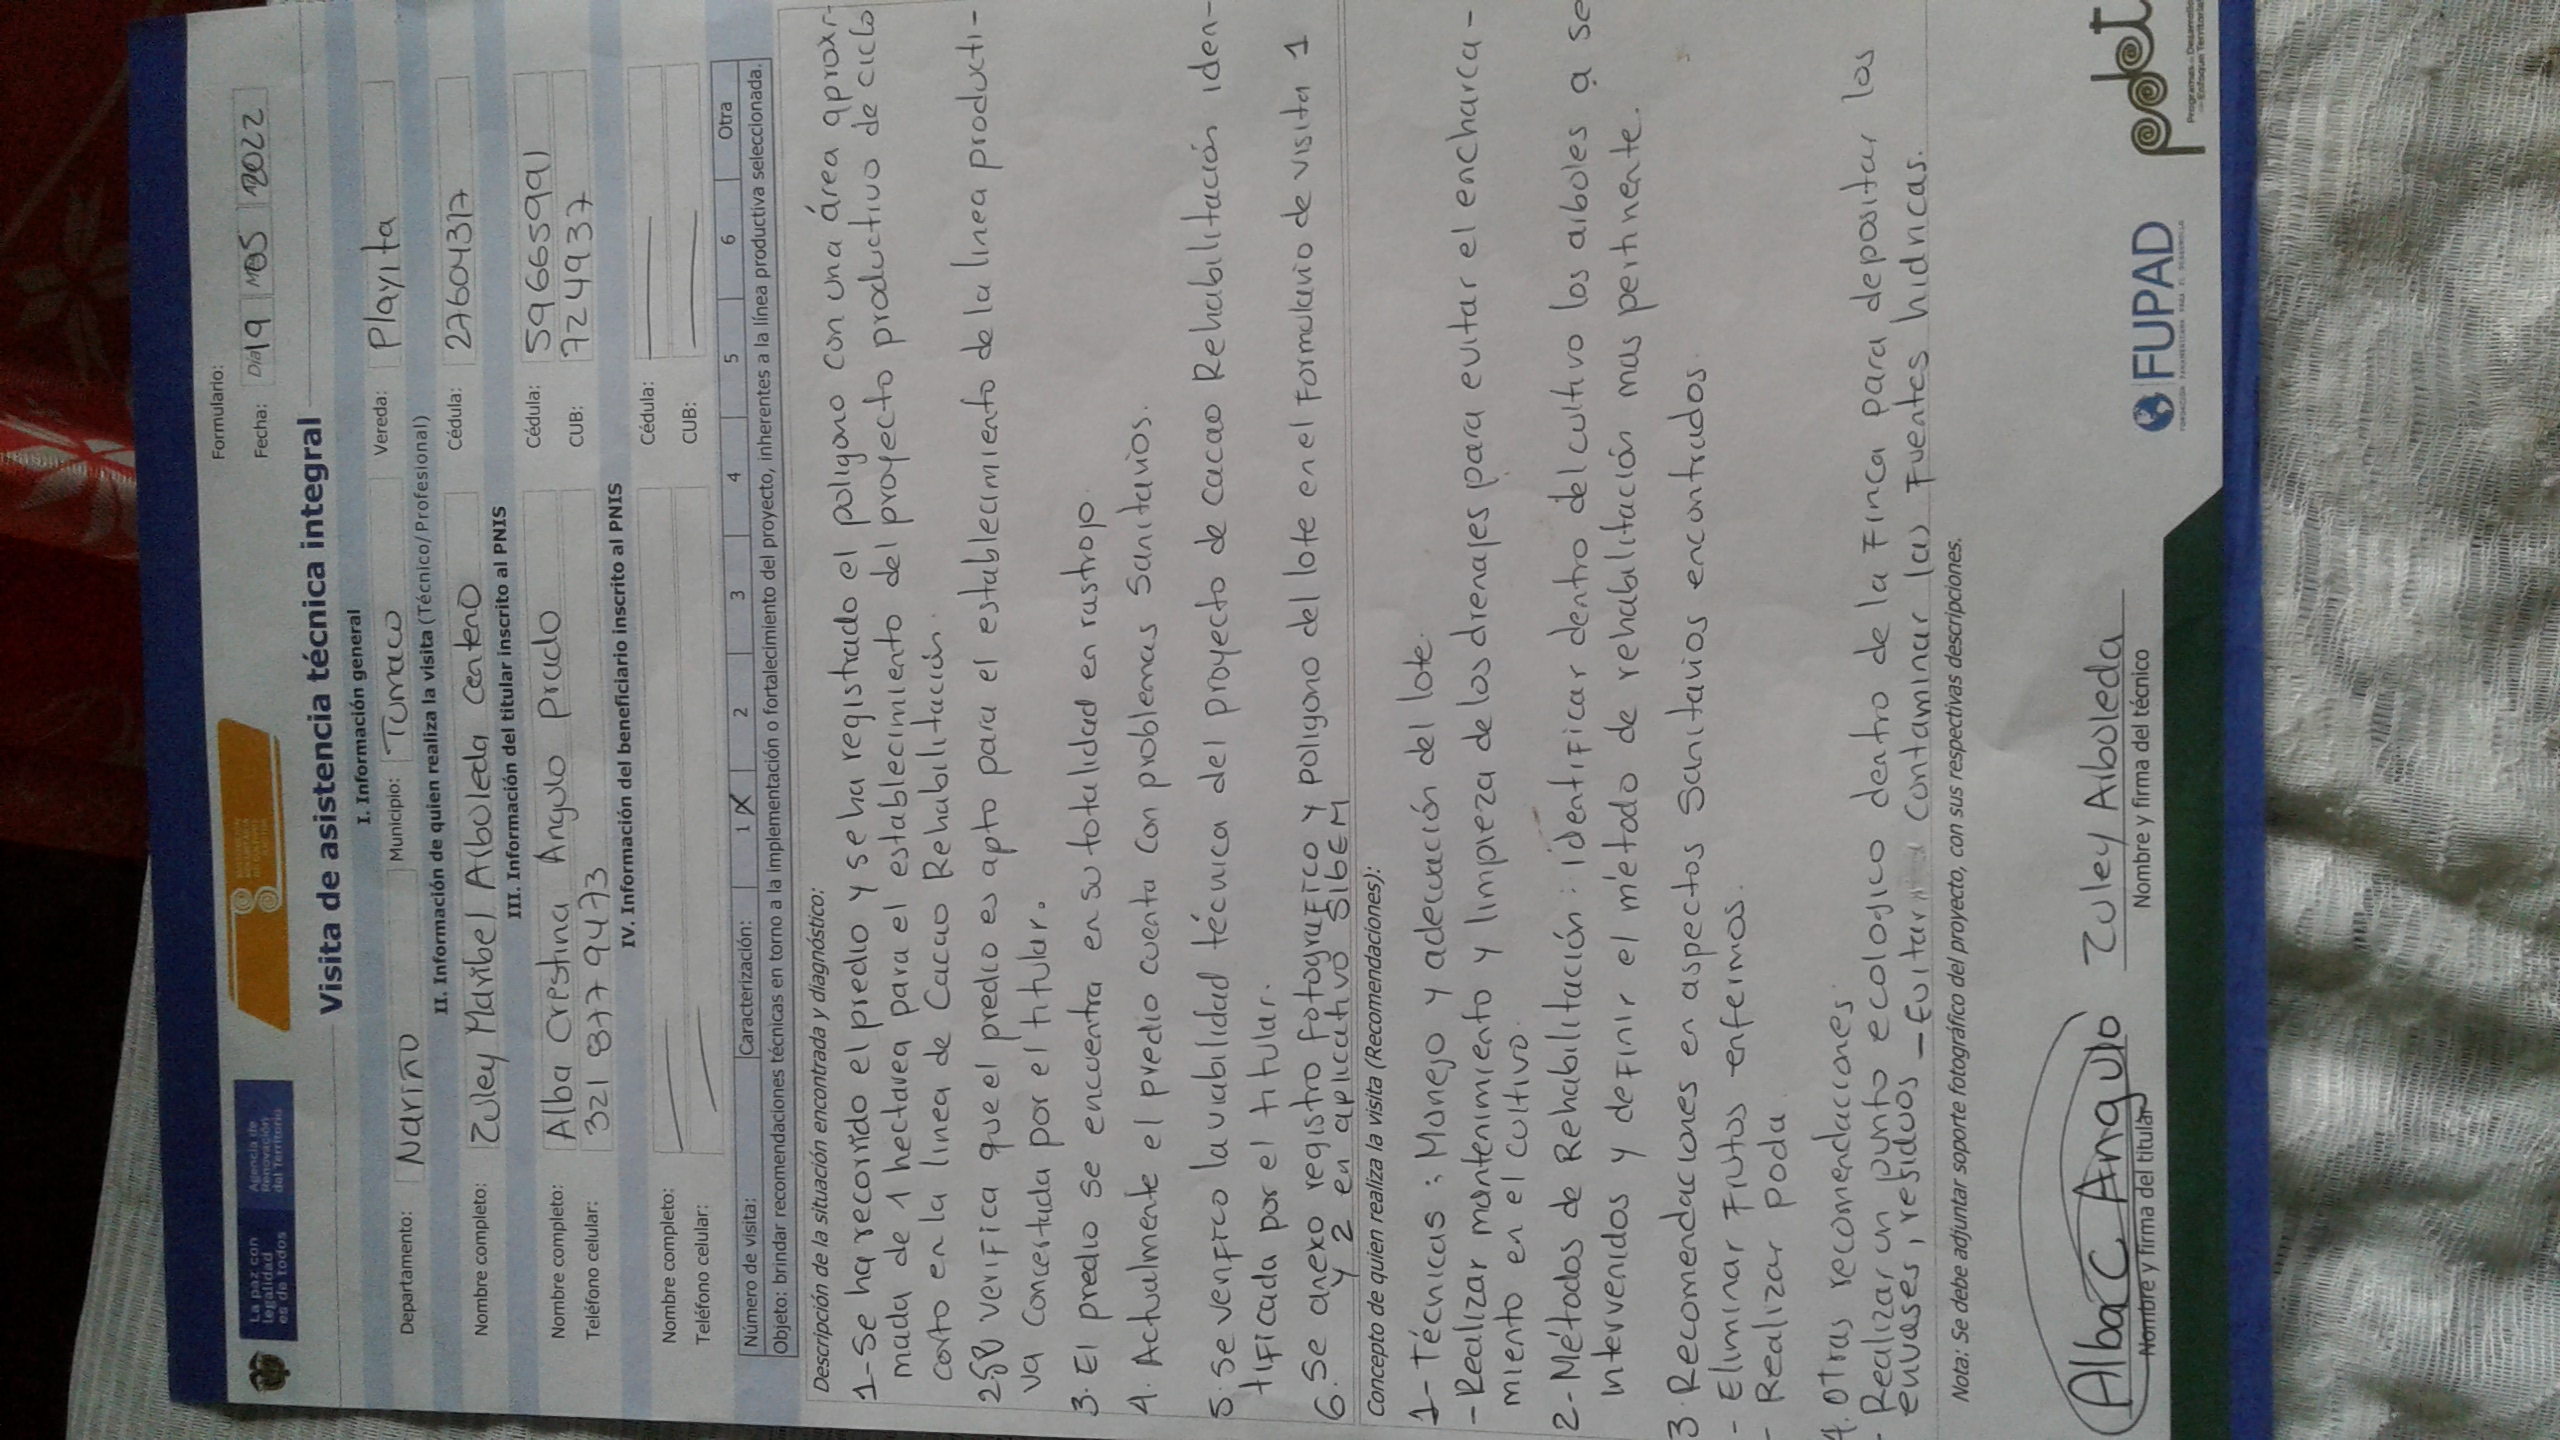 La paz con
legalidad
es de todos
Agencia de
Renovación
del Territorio
Formulario:
Fecha: Día 19 M 05 2022
Visita de asistencia técnica integral
I. Información general
Departamento: Nariño Municipio: Tumaco Vereda: Playita
II. Información de quien realiza la visita (Técnico/Profesional)
Nombre completo: Zuley Maribel Arboleda Centeno Cédula: 27604317
III. Información del titular inscrito al PNIS
Nombre completo: Alba Crestina Angulo Prado Cédula: 59665991
Teléfono celular: 321 877 9473 CUB: 7224937
IV. Información del beneficiario inscrito al PNIS
Nombre completo: Cédula:
Teléfono celular: CUB:
Número de visita: Caracterización: 1 X 2 3 4 5 6 Otra
Objeto: brindar recomendaciones técnicas en torno a la implementación o fortalecimiento del proyecto, inherentes a la línea productiva seleccionada.
Descripción de la situación encontrada y diagnóstico:
1-Se ha recorrido el predio y se ha registrado el poligono con una área aproxi-
mada de 1 hectarea para el establecimiento del proyecto productivo de ciclo
corto en la linea de Cacao Rehabilitación.
2 Se verifica que el predio es apto para el establecimiento de la linea producti-
va concertada por el titular.
3. El predio se encuentra en su totalidad en rastrojo.
4. Actualmente el predio cuenta con problemas Sanitarios.
5. Se verifico la viabilidad técnica del proyecto de cacao Rehabilitación iden-
tificada por el titular.
6. Se anexo registro fotografico y poligono del lote en el Formulario de visita 1
y 2 en aplicativo SibEM
Concepto de quien realiza la visita (Recomendaciones):
1- Técnicas: Manejo y adecuación del lote.
- Realizar mantenimiento y limpieza de los drenajes para evitar el encharca-
miento en el cultivo.
2- Métodos de Rehabilitación: identificar dentro del cultivo los arboles a se
intervenidos y definir el método de rehabilitación mas pertinente.
3. Recomendaciones en aspectos Sanitarios encontrados.
- Eliminar Frutos enfermos.
- Realizar poda.
4. Otras recomendaciones.
- Realizar un punto ecologico dentro de la Finca para depositar los
envases, residuos - Evitar contaminar las Fuentes hidricas.
Nota: Se debe adjuntar soporte fotográfico del proyecto, con sus respectivas descripciones.
Alba C Angulo
Nombre y firma del titular
Zuley Arboleda
Nombre y firma del técnico
FUPAD
pdet
Programas de Desarrollo
con Enfoque Territorial